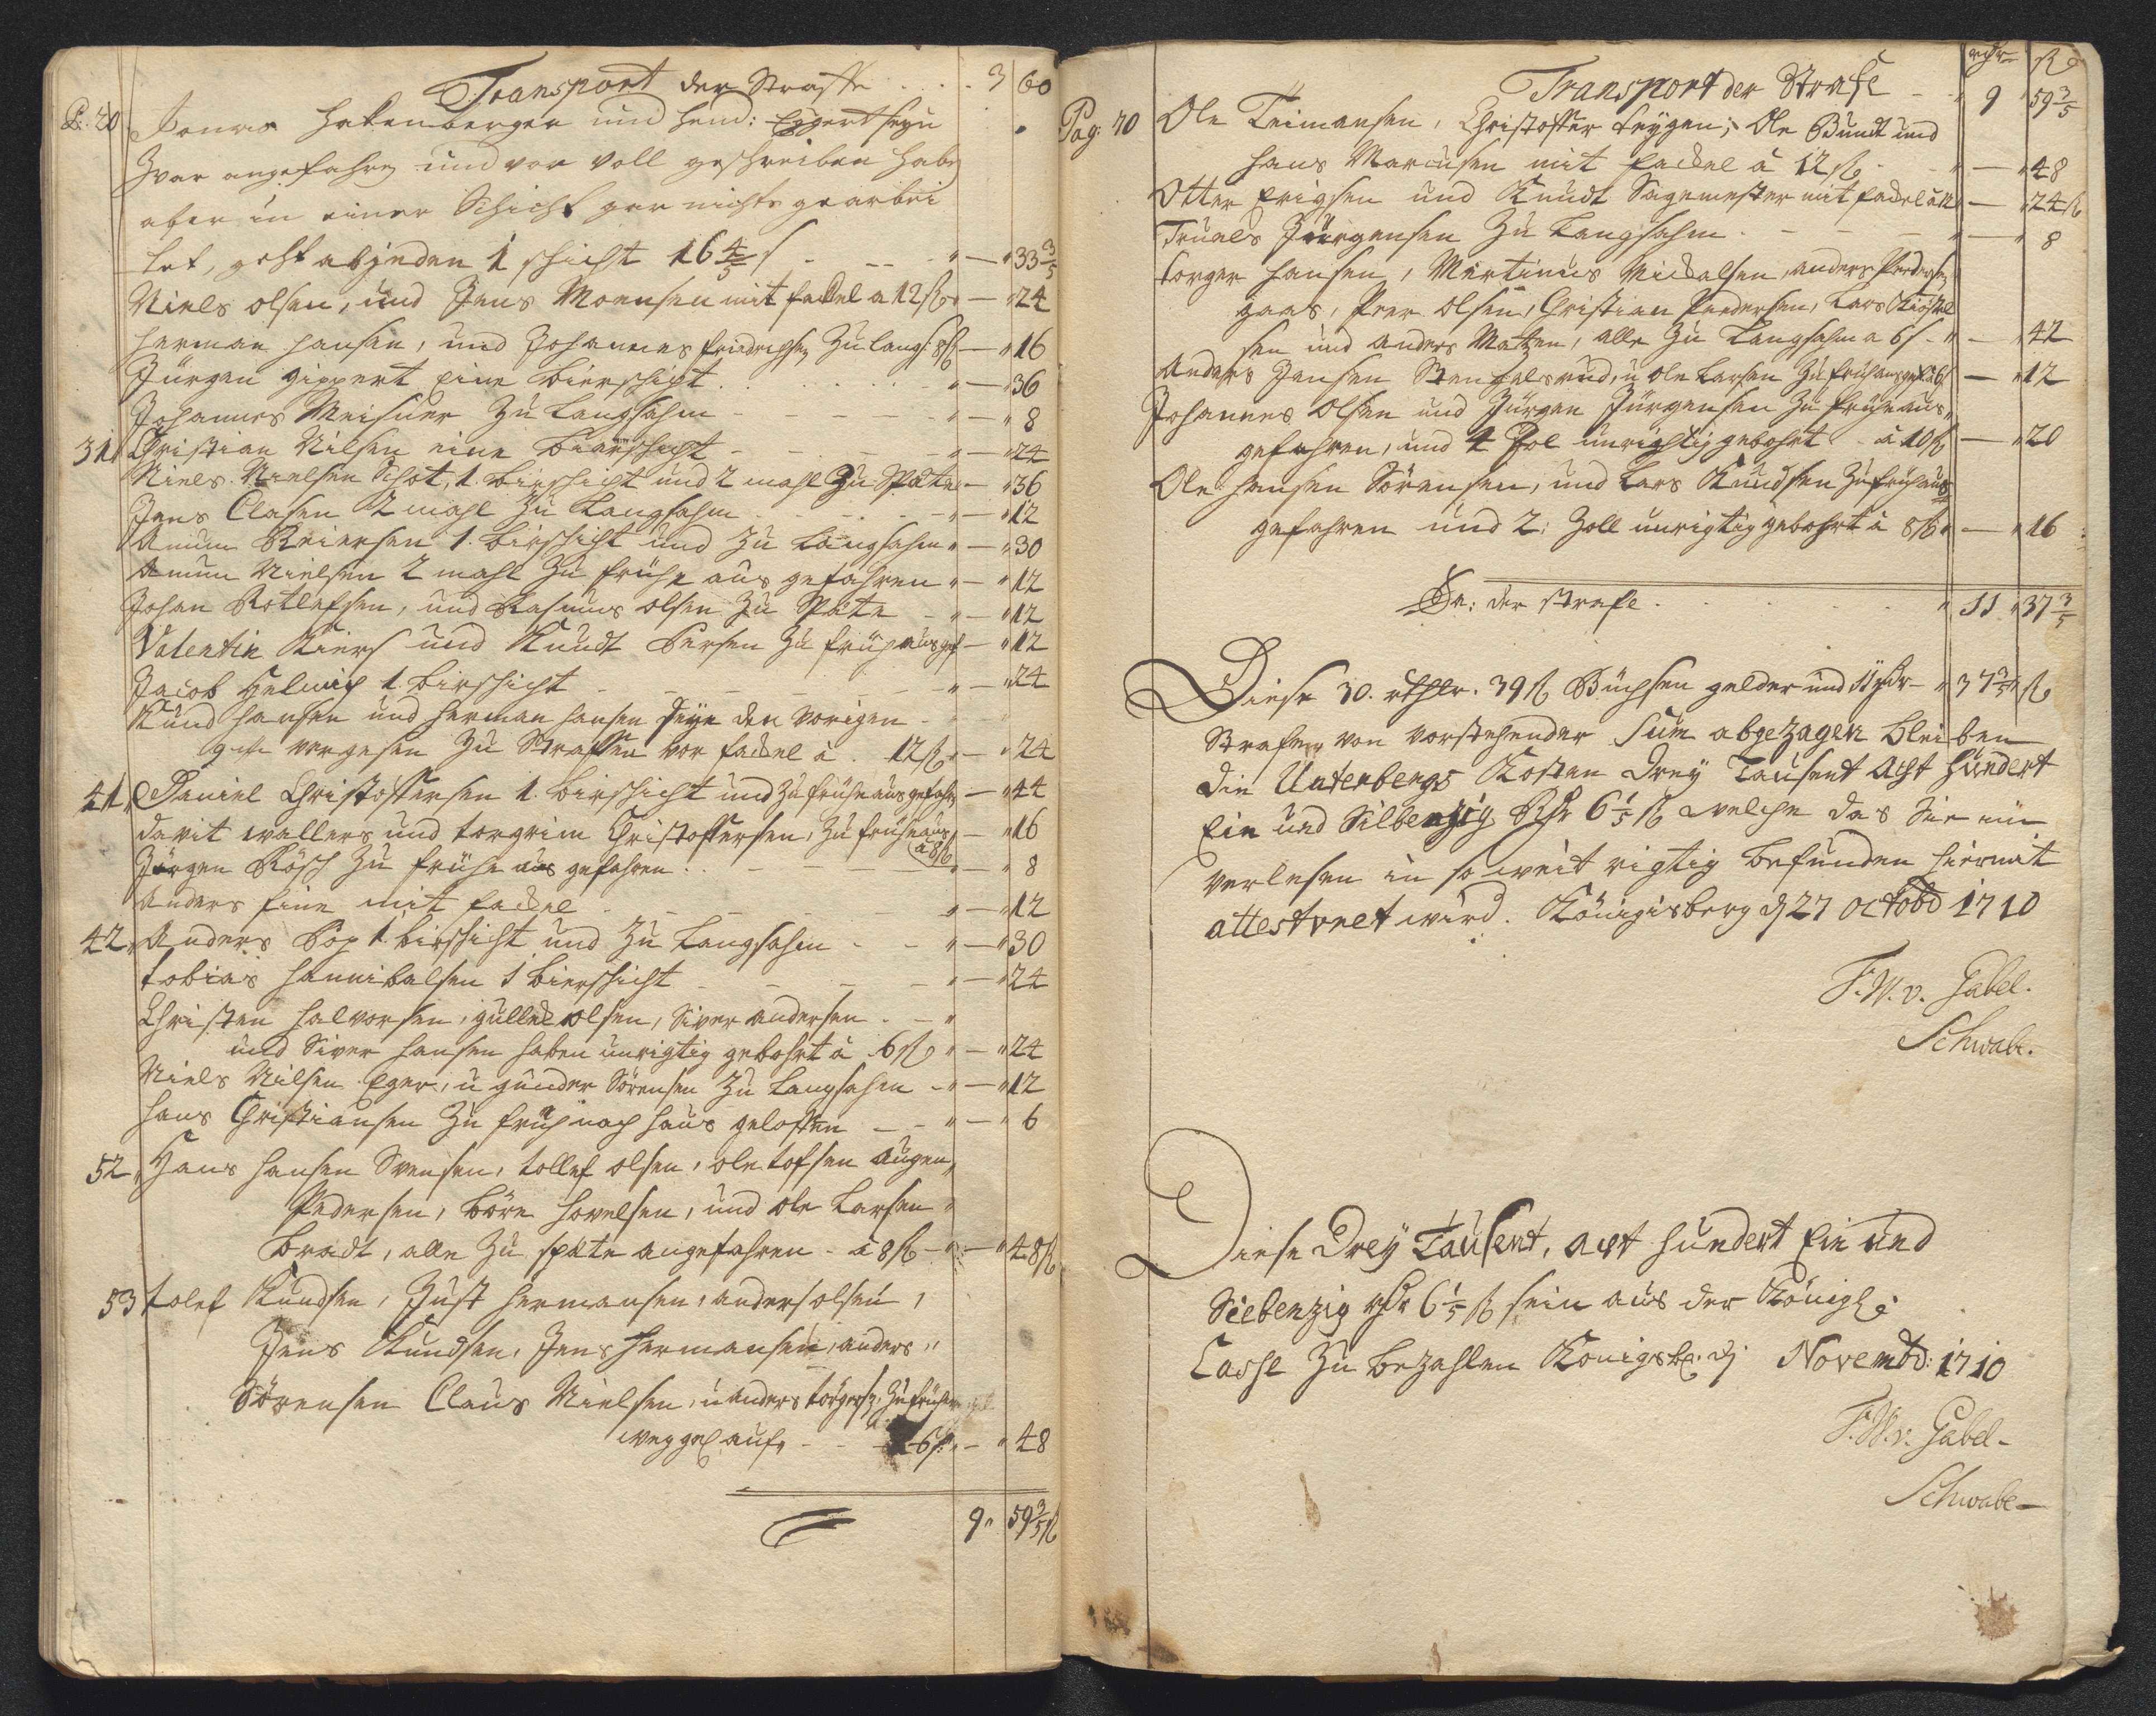 Transport der Straffe . . . 3 60
P: 20 Jonas Hakenberger und Hend: Eggert seyn
Zwar angefahren und vor voll geschreiben haben
aber in einer Schicht gar nichts gearbei
tet, geht ab jeden 1 schicht 16 4/5 s - - - " — " 33 3/5
Niels olsen, und Jens Monsen mit fackel a 12 ß " — " 24
Herman Hansen, und Johannes Friedrichsen Zu langs: 8 ß — " 16
Jürgen Gippert Eine bierschicht . . . . . " — " 36
Johannes Meisner Zu langsahm - - - - - " — " 8
31 Christian Nilsen eine bierschicht - - - - " — " 24
Niels Nielsen Schot, 1. bierschicht und 2 mahl Zu Späte — " 36
Jens Clasen 2 mahl Zu Langsahm - - - - " — " 12
Amun Reiersen 1. bierschicht und Zu langsahm " — " 30
Amun Nielsen 2 mahl Zu frühe aus gefahren " — " 12
Johan Rotlefsen, und Rasmus olsen Zu Späte - " — " 12
Valentin Kiers und Knudt Persen Zu früh aus gef — " 12
Jacob Helmich 1. bierschicht - - - - - " — " 24
Knud Hansen und Herman Hansen seye den vorigen
vergesen Zu Straffen vor fackel à . 12 ß " — " 24
41 Daniel Christoffersen 1. bierschicht und Zu frühe aus gefahren — " 44
davit wallers und torgrim Christoffersen, Zu frühe aus — " 16
à 8 ß
Jörgen Rösch Zu frühe aus gefahren . . - - - " — " 8
Anders fine mit fackel - - - - - " — " 12
42 Anders Bop 1. bierschicht und Zu Langsahm - - " — " 30
tobias Hannibalsen 1 bierschicht - - - - " — " 24
Christen Halvorsen, gullick olsen, Siver andersen . - "
und Siver Hansen haben unrigtig gebohrt à 6 ß " — " 24
Niels Nilsen Eger, u gunder Sörensen Zu Langsahm - " — " 12
Hans Christiansen Zu früh nach Haus geloffen - - " — " 6
52 Hans Hansen Svensen, tollef olsen, ole tofsen Augen,
Pedersen, Böre Hovelsen, und ole Larsen
Bradt, alle Zu späte angefahren - à 8 ß - " — " 48 ß
53 tolef Knudsen, Just Hermansen, anders olsen,
Jens Knudsen, Jens Hermansen, anders "
Sörensen Claus Nielsen, u anders torgersen, Zu frühe
6 ß " — " 48
9 " 59 3/5 ß
rthr ß
Transport der Strafe - - " 9 " 59 3/5
Pag: 70 Ole Teimansen, Christoffer Feygen; Ole Bundt und
Hans Mariusen mit fackel à 12 ß - " — " 48
Otter Erigsen und Knudt Sagemester mit fackel à 12 " — " 24 ß
Truels Jürgensen Zu Langsahm - - - - " — " 8
Torger Hansen, Martinus Nickalsen, anders Pedersen
gaas, Peer olsen, Christian Pedersen, Lars Kiöstel
sen und anders Matzen, alle Zu Langsahm a 6 s - " — " 42
Anders Jensen Stengelsrud, u ole Larsen Zu früh ausgef: à 6 s — " 12
Johannes Olsen und Jürgen Jürgensen Zu frühe aus,
gefahren, und 4 Zol unrichtig gebohrt - à 10 ß — " 20
Ole Hansen Sörensen, und Lars Knudsen Zu früh aus
gefahren und 2: Zoll unrigtig gebohrt à 8 ß " — " 16
Sa: der strafe . . . . . " 11 " 37 3/5
Diese 30. rthlr. 39 ß Büchsen gelder und 11 rdr - " 37 3/5 " ß
Strafen von vorstehender Sum abgezagen bleiben
die Unterbergs Kosten Drey Tausent Acht Hundert
Ein und Silbenzig Rdr 6 1/5 ß welche das Sie im
verlesen in so weit rigtig befunden hiermit
attestyret wird. Königisberg d 27 Octobr 1710
F. W. v. Gabel.
Schwabe.
Diese Drey Tausent, acht hundert Ein und
Siebenzig rdr 6 1/5 ß sein aus der Königl:
Casse Zu bezahlen Königsb: d: Novembr: 1710
F. W. v. Gabel -
Schwabe -